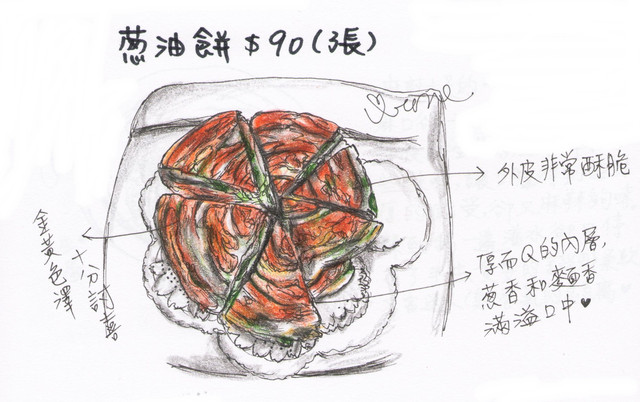 葱油餅 $90(張)
外皮非常酥脆
金黃色澤
十分討喜
厚而Q的內層,
葱香和麵香
滿溢口中♥